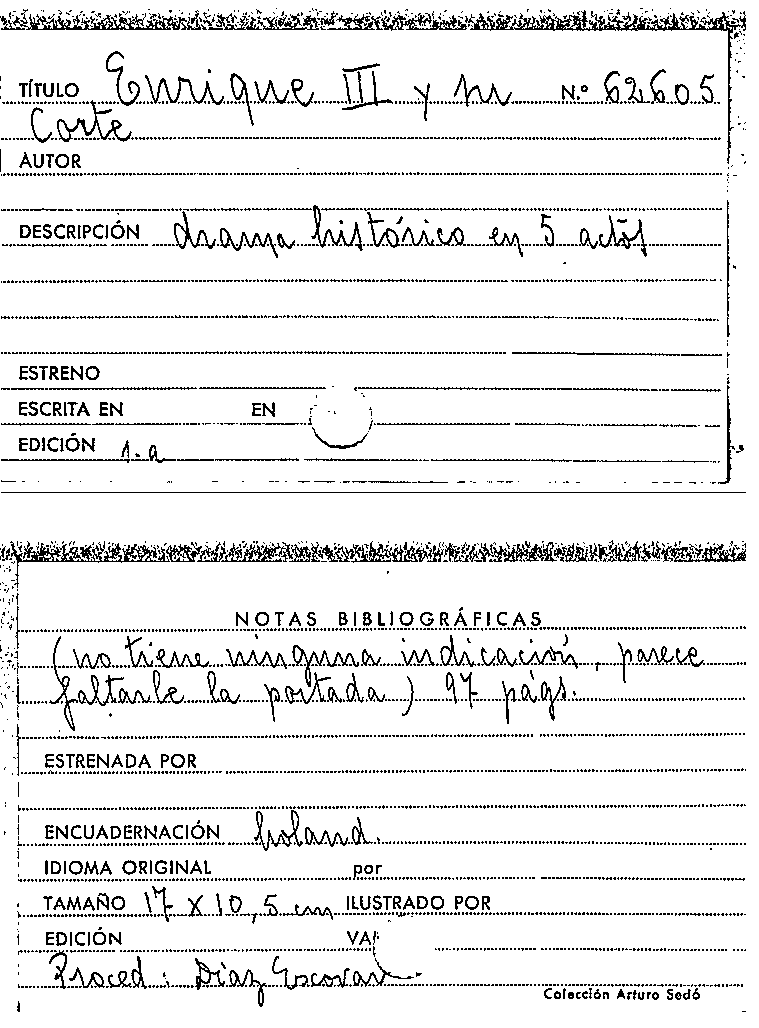 TÍTULO Enrique III y su N.º 62605
Corte
AUTOR
DESCRIPCIÓN drama histórico en 5 actos
ESTRENO
ESCRITA EN EN
EDICIÓN 1.a
NOTAS BIBLIOGRÁFICAS
(no tiene ninguna indicación, parece
faltarle la portada) 97 págs.
ESTRENADA POR
ENCUADERNACIÓN holand.
IDIOMA ORIGINAL por
TAMAÑO 17 X 10,5 cm ILUSTRADO POR
EDICIÓN VA
Proced: Díaz Escovar.
Colección Arturo Sedó